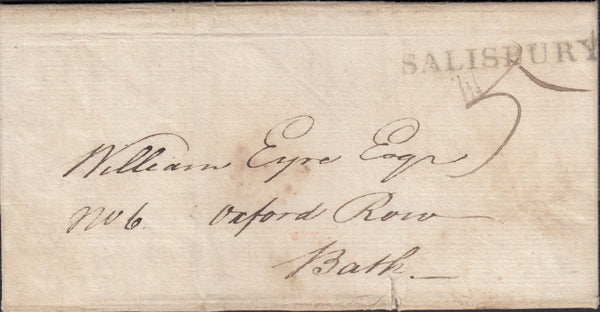 SALISBURY
5
William Eyre Esqr
No 6. Oxford Row
Bath